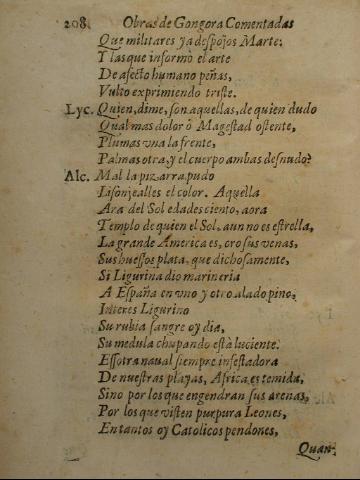 208. Obras de Gongora Comentadas
Que militares ya despojos Marte:
Y las que informò el arte
De afecto humano peñas,
Vulto exprimiendo triste.
Lyc. Quien, dime, son aquellas, de quien dudo
Qual mas dolor ò Magestad ostente,
Plumas vna la frente,
Palmas otra, y el cuerpo ambas desnudo?
Alc. Mal la pizarra pudo
Lisonjealles el color. Aquella
Ara del Sol edades ciento, aora
Templo de quien el Sol, aun no es estrella,
La grande America es, oro sus venas,
Sus huessos plata, que dichosamente,
Si Ligurina dio marineria
A España en vno y otro alado pino,
Interes Ligurino
Su rubia sangre oy dia,
Su medula chupando està luciente.
Essotra naual siempre infestadora
De nuestras playas, Africa es temida,
Sino por los que engendran sus arenas,
Por los que visten purpura Leones,
En tantos oy Catolicos pendones,
Quan-